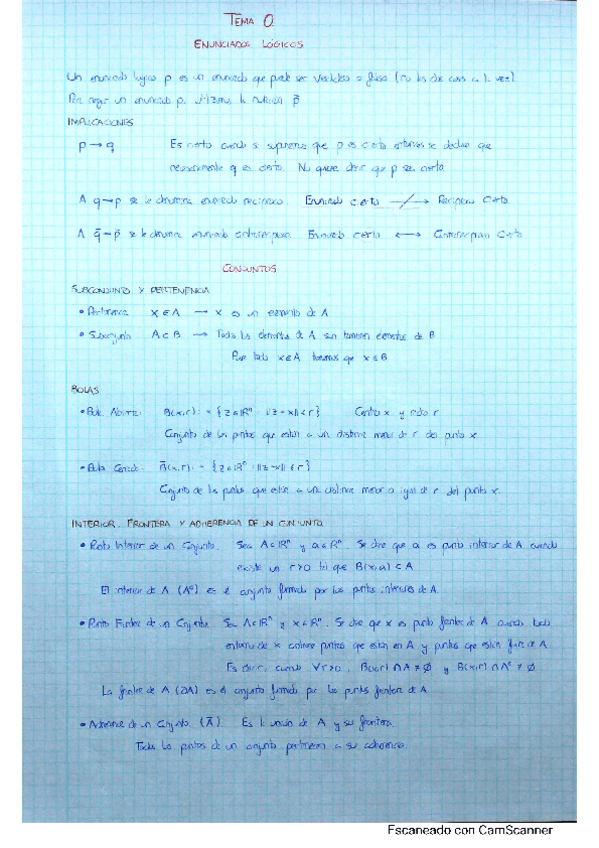 TEMA 0
ENUNCIADOS LÓGICOS
Un enunciado lógico p es un enunciado que puede ser verdadero o falso (no las dos cosas a la vez)
Para negar un enunciado p, utilizamos la notación p̄
IMPLICACIONES
p → q Es cierto cuando si suponemos que p es cierto entonces se deduce que
necesariamente q es cierto. No quiere decir que p sea cierto
A q → p se le denomina enunciado recíproco. Enunciado cierto —/→ Recíproco cierto
A q̄ → p̄ se le denomina enunciado contrarrecíproco. Enunciado cierto ↔ cierto
CONJUNTOS
SUBCONJUNTO Y PERTENENCIA
• Pertenencia x ∈ A → x es un elemento de A
• Subconjunto A ⊂ B → Todos los elementos de A son también elementos de B
Para todo x ∈ A tenemos que x ∈ B
BOLAS
• Bola Abierta: B(x,r) = {z ∈ ℝⁿ : ||z-x|| < r} Centro x y radio r
Conjunto de los puntos que están a una distancia menor de r del punto x.
• Bola Cerrada: B̄(x,r) = {z ∈ ℝⁿ : ||z-x|| ≤ r}
Conjunto de los puntos que están a una distancia menor o igual de r del punto x.
INTERIOR, FRONTERA Y ADHERENCIA DE UN CONJUNTO
• Punto Interior de un Conjunto. Sea A ⊂ ℝⁿ y a ∈ ℝⁿ. Se dice que a es punto interior de A cuando
existe un r>0 tal que B(a,r) ⊂ A
El interior de A (A°) es el conjunto formado por los puntos interiores de A.
• Punto Frontera de un Conjunto. Sea A ⊂ ℝⁿ y x ∈ ℝⁿ. Se dice que x es punto frontera de A cuando todo
entorno de x contiene puntos que están en A y puntos que están fuera de A.
Es decir, cuando ∀r>0, B(x,r) ∩ A ≠ ∅ y B(x,r) ∩ Aᶜ ≠ ∅
La frontera de A (∂A) es el conjunto formado por los puntos frontera de A.
• Adherencia de un Conjunto (Ā) Es la unión de A y su frontera.
Todos los puntos de un conjunto pertenecen a su adherencia.
Escaneado con CamScanner